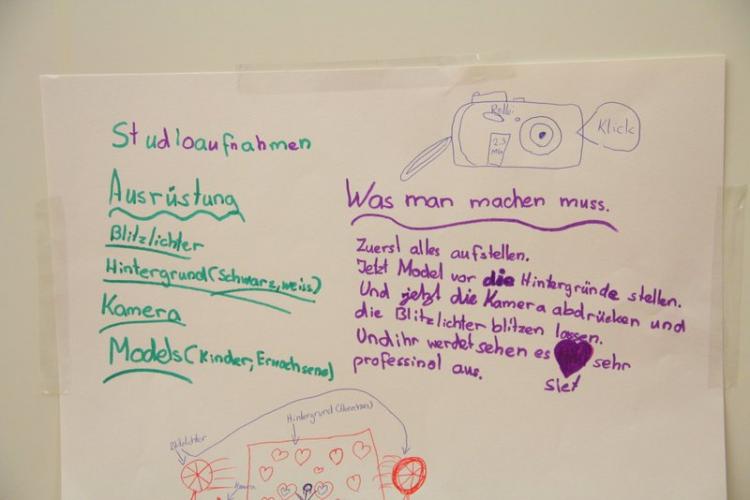 Studioaufnahmen
Ausrüstung
Blitzlichter
Hintergrund (Schwarz, weiss)
Kamera
Models (Kinder, Erwachsene)
Rollei
2.3
Klick
Was man machen muss.
Zuerst alles aufstellen.
Jetzt Model vor die Hintergründe stellen.
Und jetzt die Kamera abdrücken und
die Blitzlichter blitzen lassen.
Und ihr werdet sehen es sehr
siet
professinol aus.
Blitzlichter
Kamera